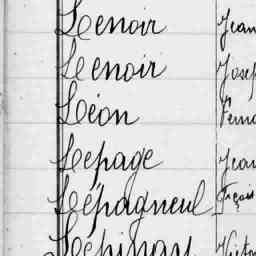 Lenoir Jean
Lenoir Josep
Léon Ferna
Lepage Jean
Lépagneul Fçois
Lépinay Victor